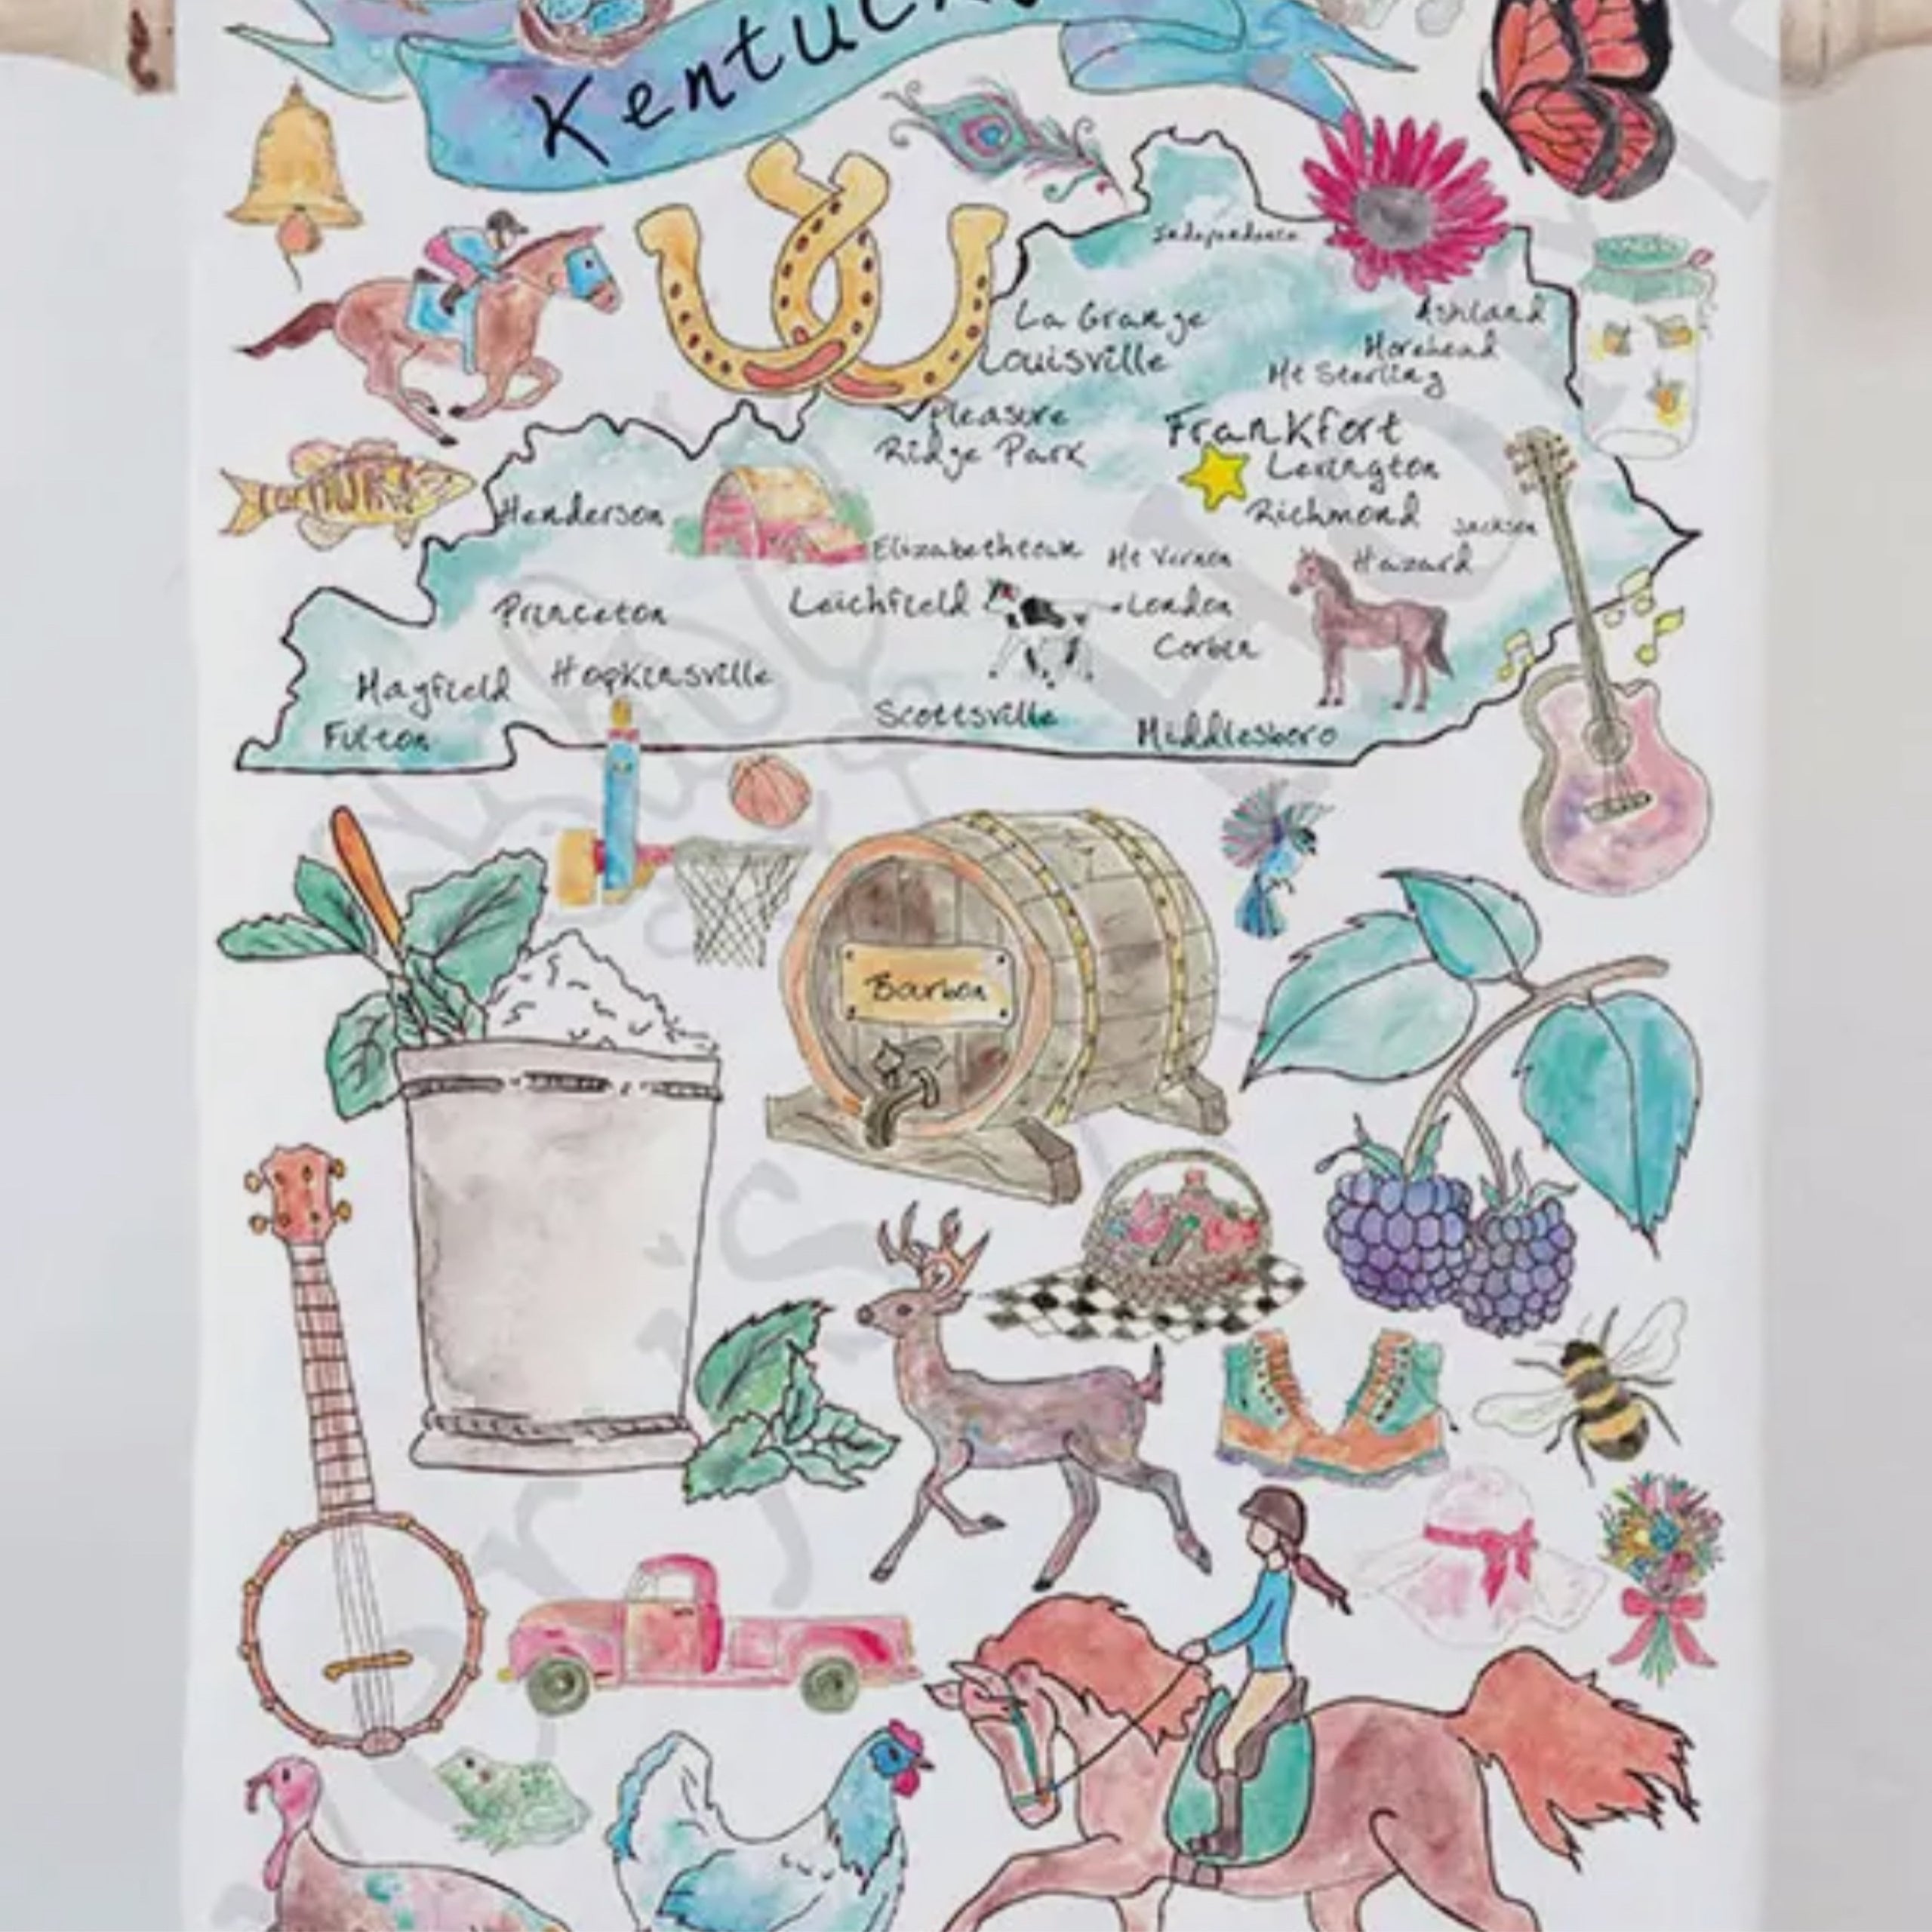 Kentucky
Independence
La Grange
Ashland
Louisville
Morehead
Mt Sterling
Pleasure
Ridge Park
Frankfort
Lexington
Henderson
Richmond
Jackson
Elizabethtown
Mt Vernon
Hazard
Princeton
Leichfield
London
Corbin
Mayfield
Hopkinsville
Fulton
Scottsville
Middlesboro
Bourbon